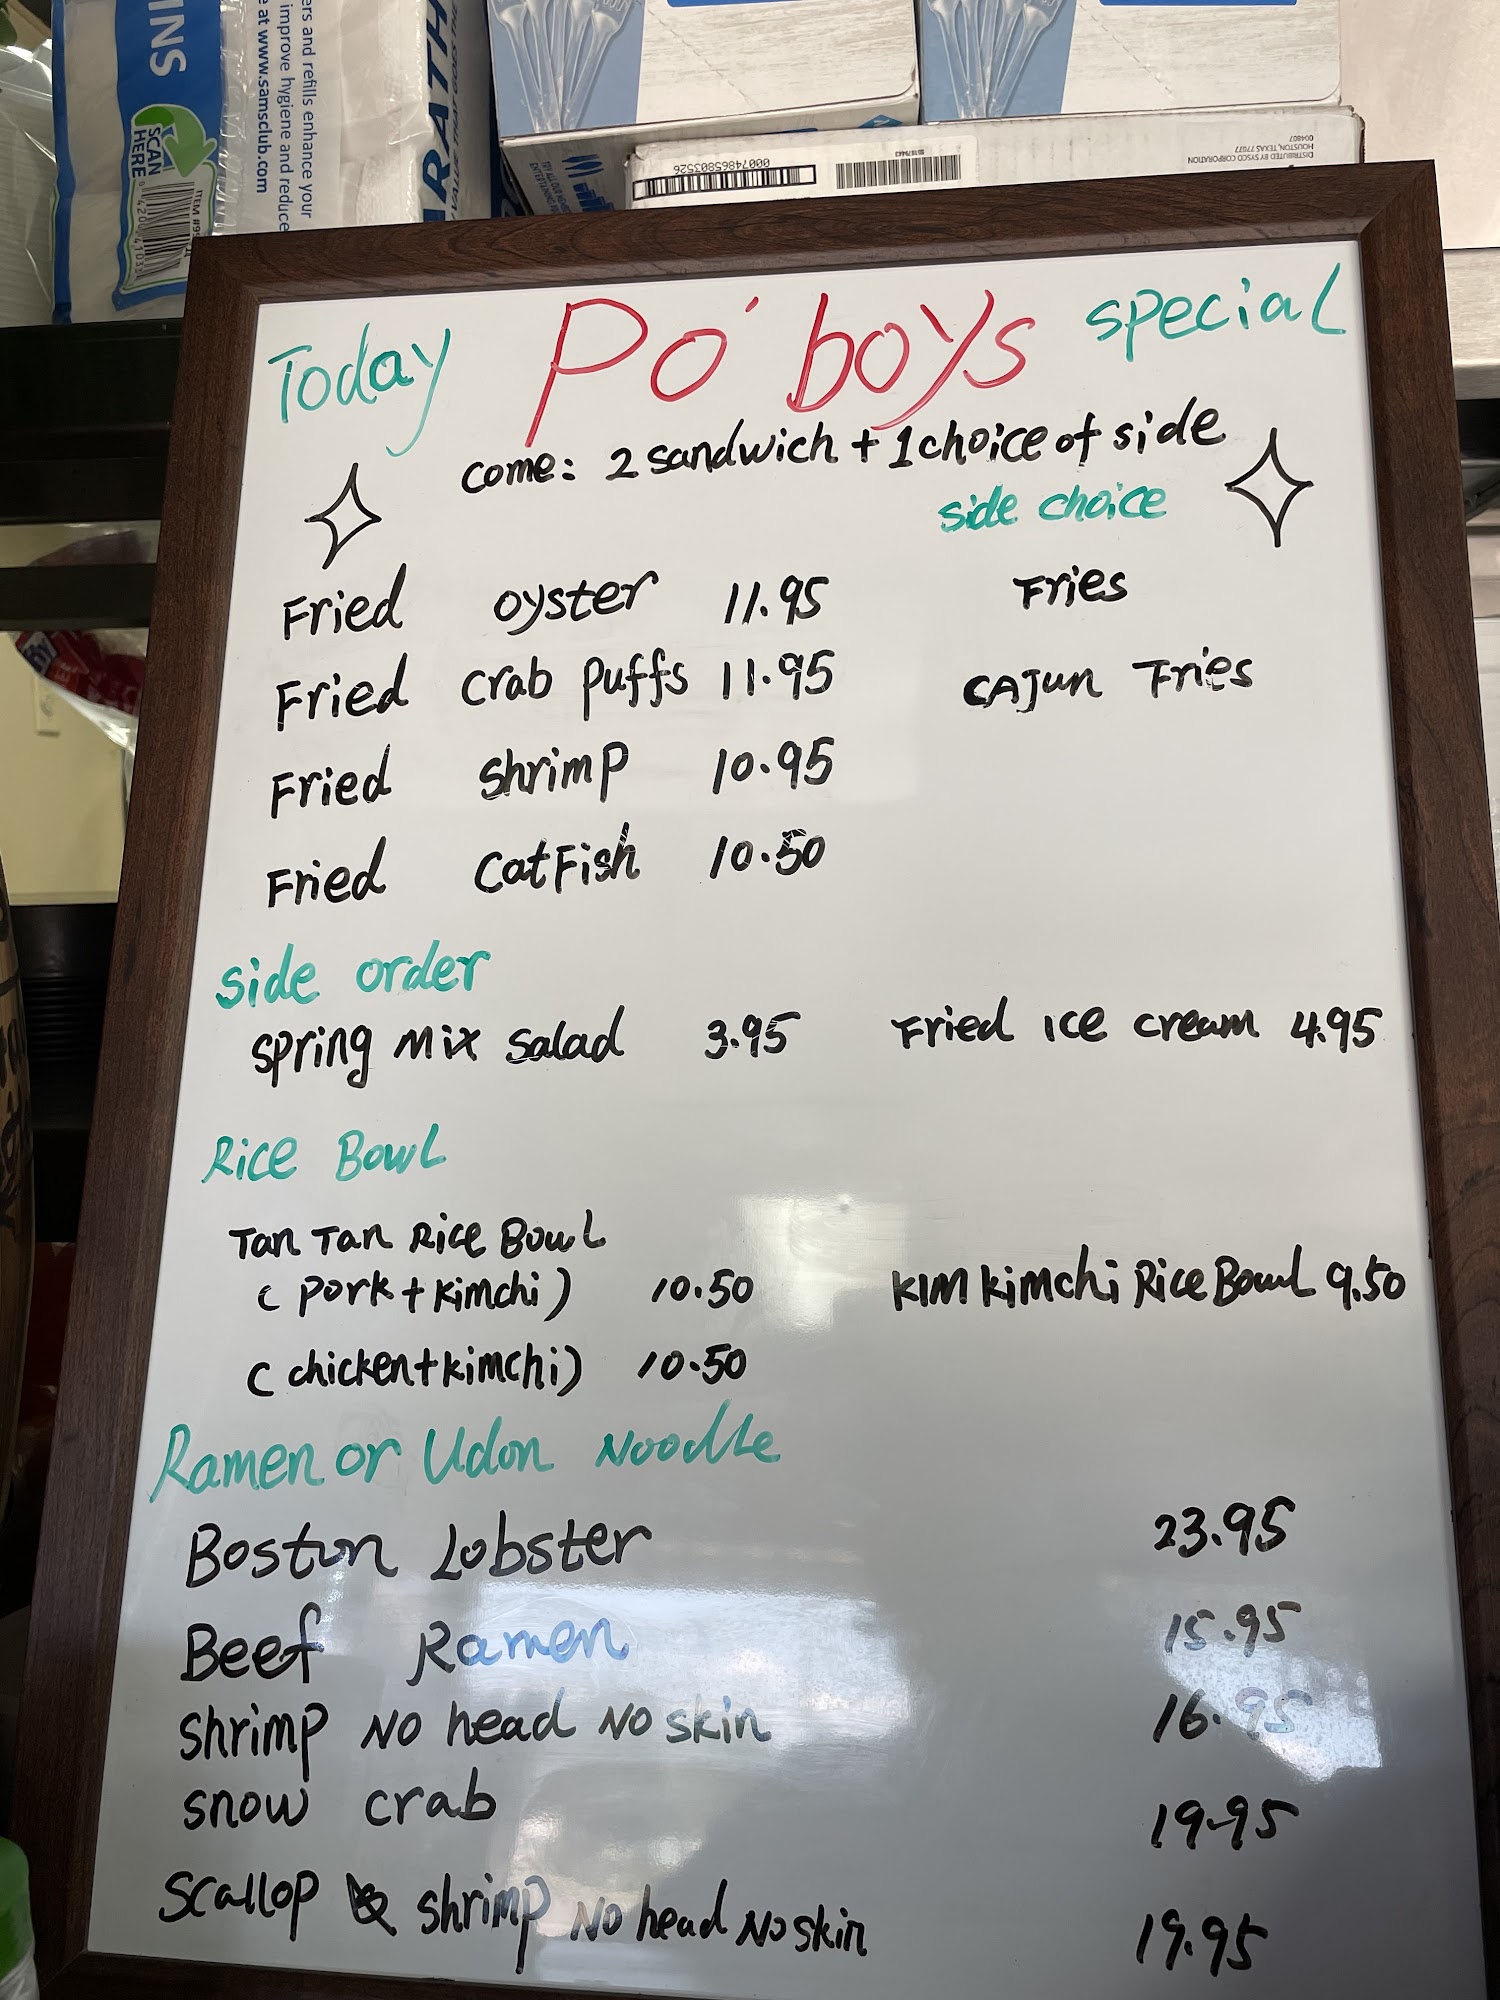 INS
SCAN HERE
ers and refills enhance your
improve hygiene and reduce
e at www.samsclub.com
RATH
VALUE THAT GOES THE
00074865803526
DISTRIBUTED BY SYSCO CORPORATION
HOUSTON, TEXAS 77077
Today Po'boys special
come: 2 sandwich + 1 choice of side
side choice
Fried oyster 11.95 Fries
Fried crab puffs 11.95 CAJun Fries
Fried shrimp 10.95
Fried CatFish 10.50
side order
spring Mix salad 3.95 Fried Ice cream 4.95
Rice BowL
Tan Tan Rice BowL
( pork + kimchi ) 10.50 KIM kimchi Rice Bowl 9.50
( chicken + kimchi ) 10.50
Ramen or Udon NoodLe
Boston Lobster 23.95
Beef Ramen 15.95
shrimp NO head NO skin 16.95
snow crab 19.95
Scallop & shrimp NO head NO skin 19.95